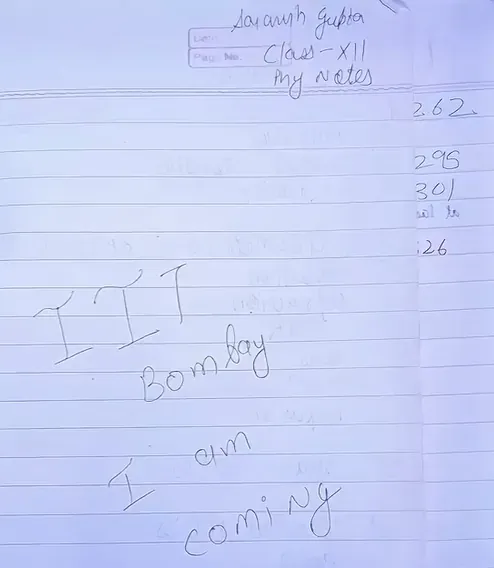 Saransh Gupta
Class-XII
My Notes
Page No.
262.
295
301
26
IIT
Bombay
I am
coming